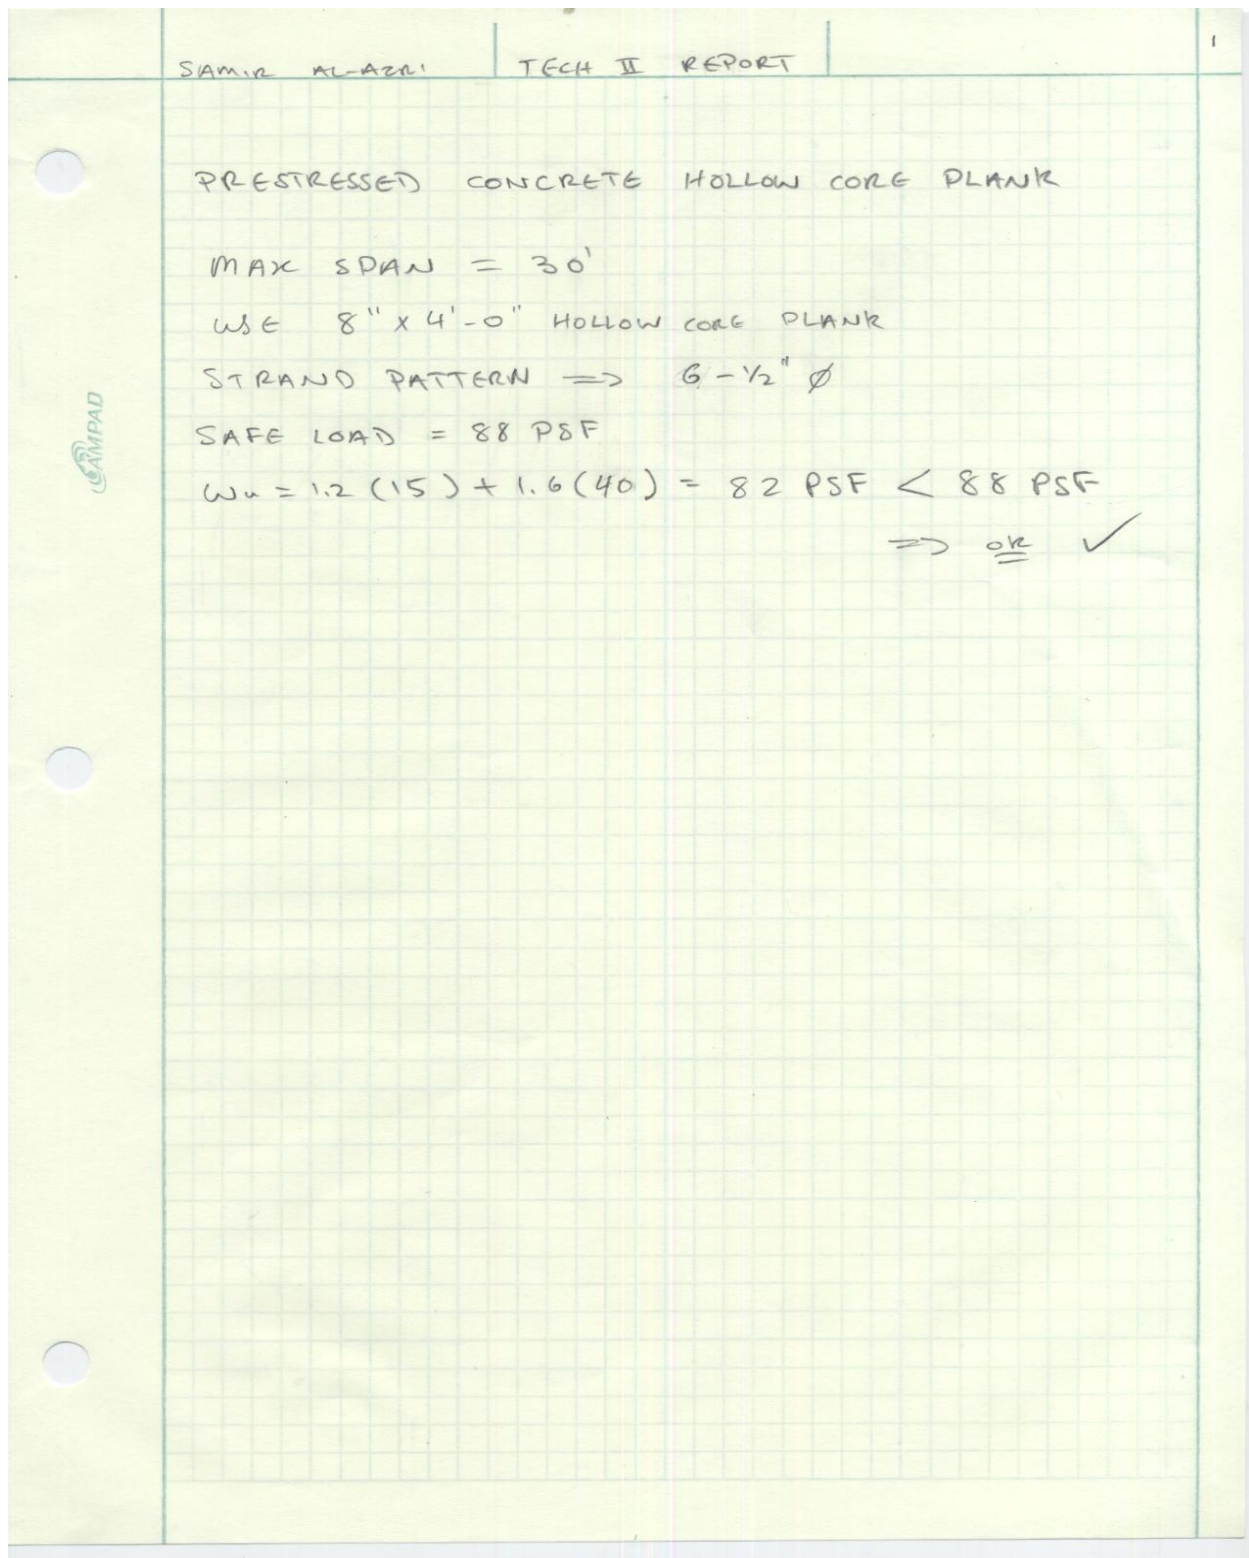 SAMIR AL-AZRI TECH II REPORT 1
PRESTRESSED CONCRETE HOLLOW CORE PLANK
MAX SPAN = 30'
USE 8" x 4'-0" HOLLOW CORE PLANK
STRAND PATTERN => 6 - 1/2" Ø
SAFE LOAD = 88 PSF
Wu = 1.2 (15) + 1.6 (40) = 82 PSF < 88 PSF
=> OK ✓
AMPAD